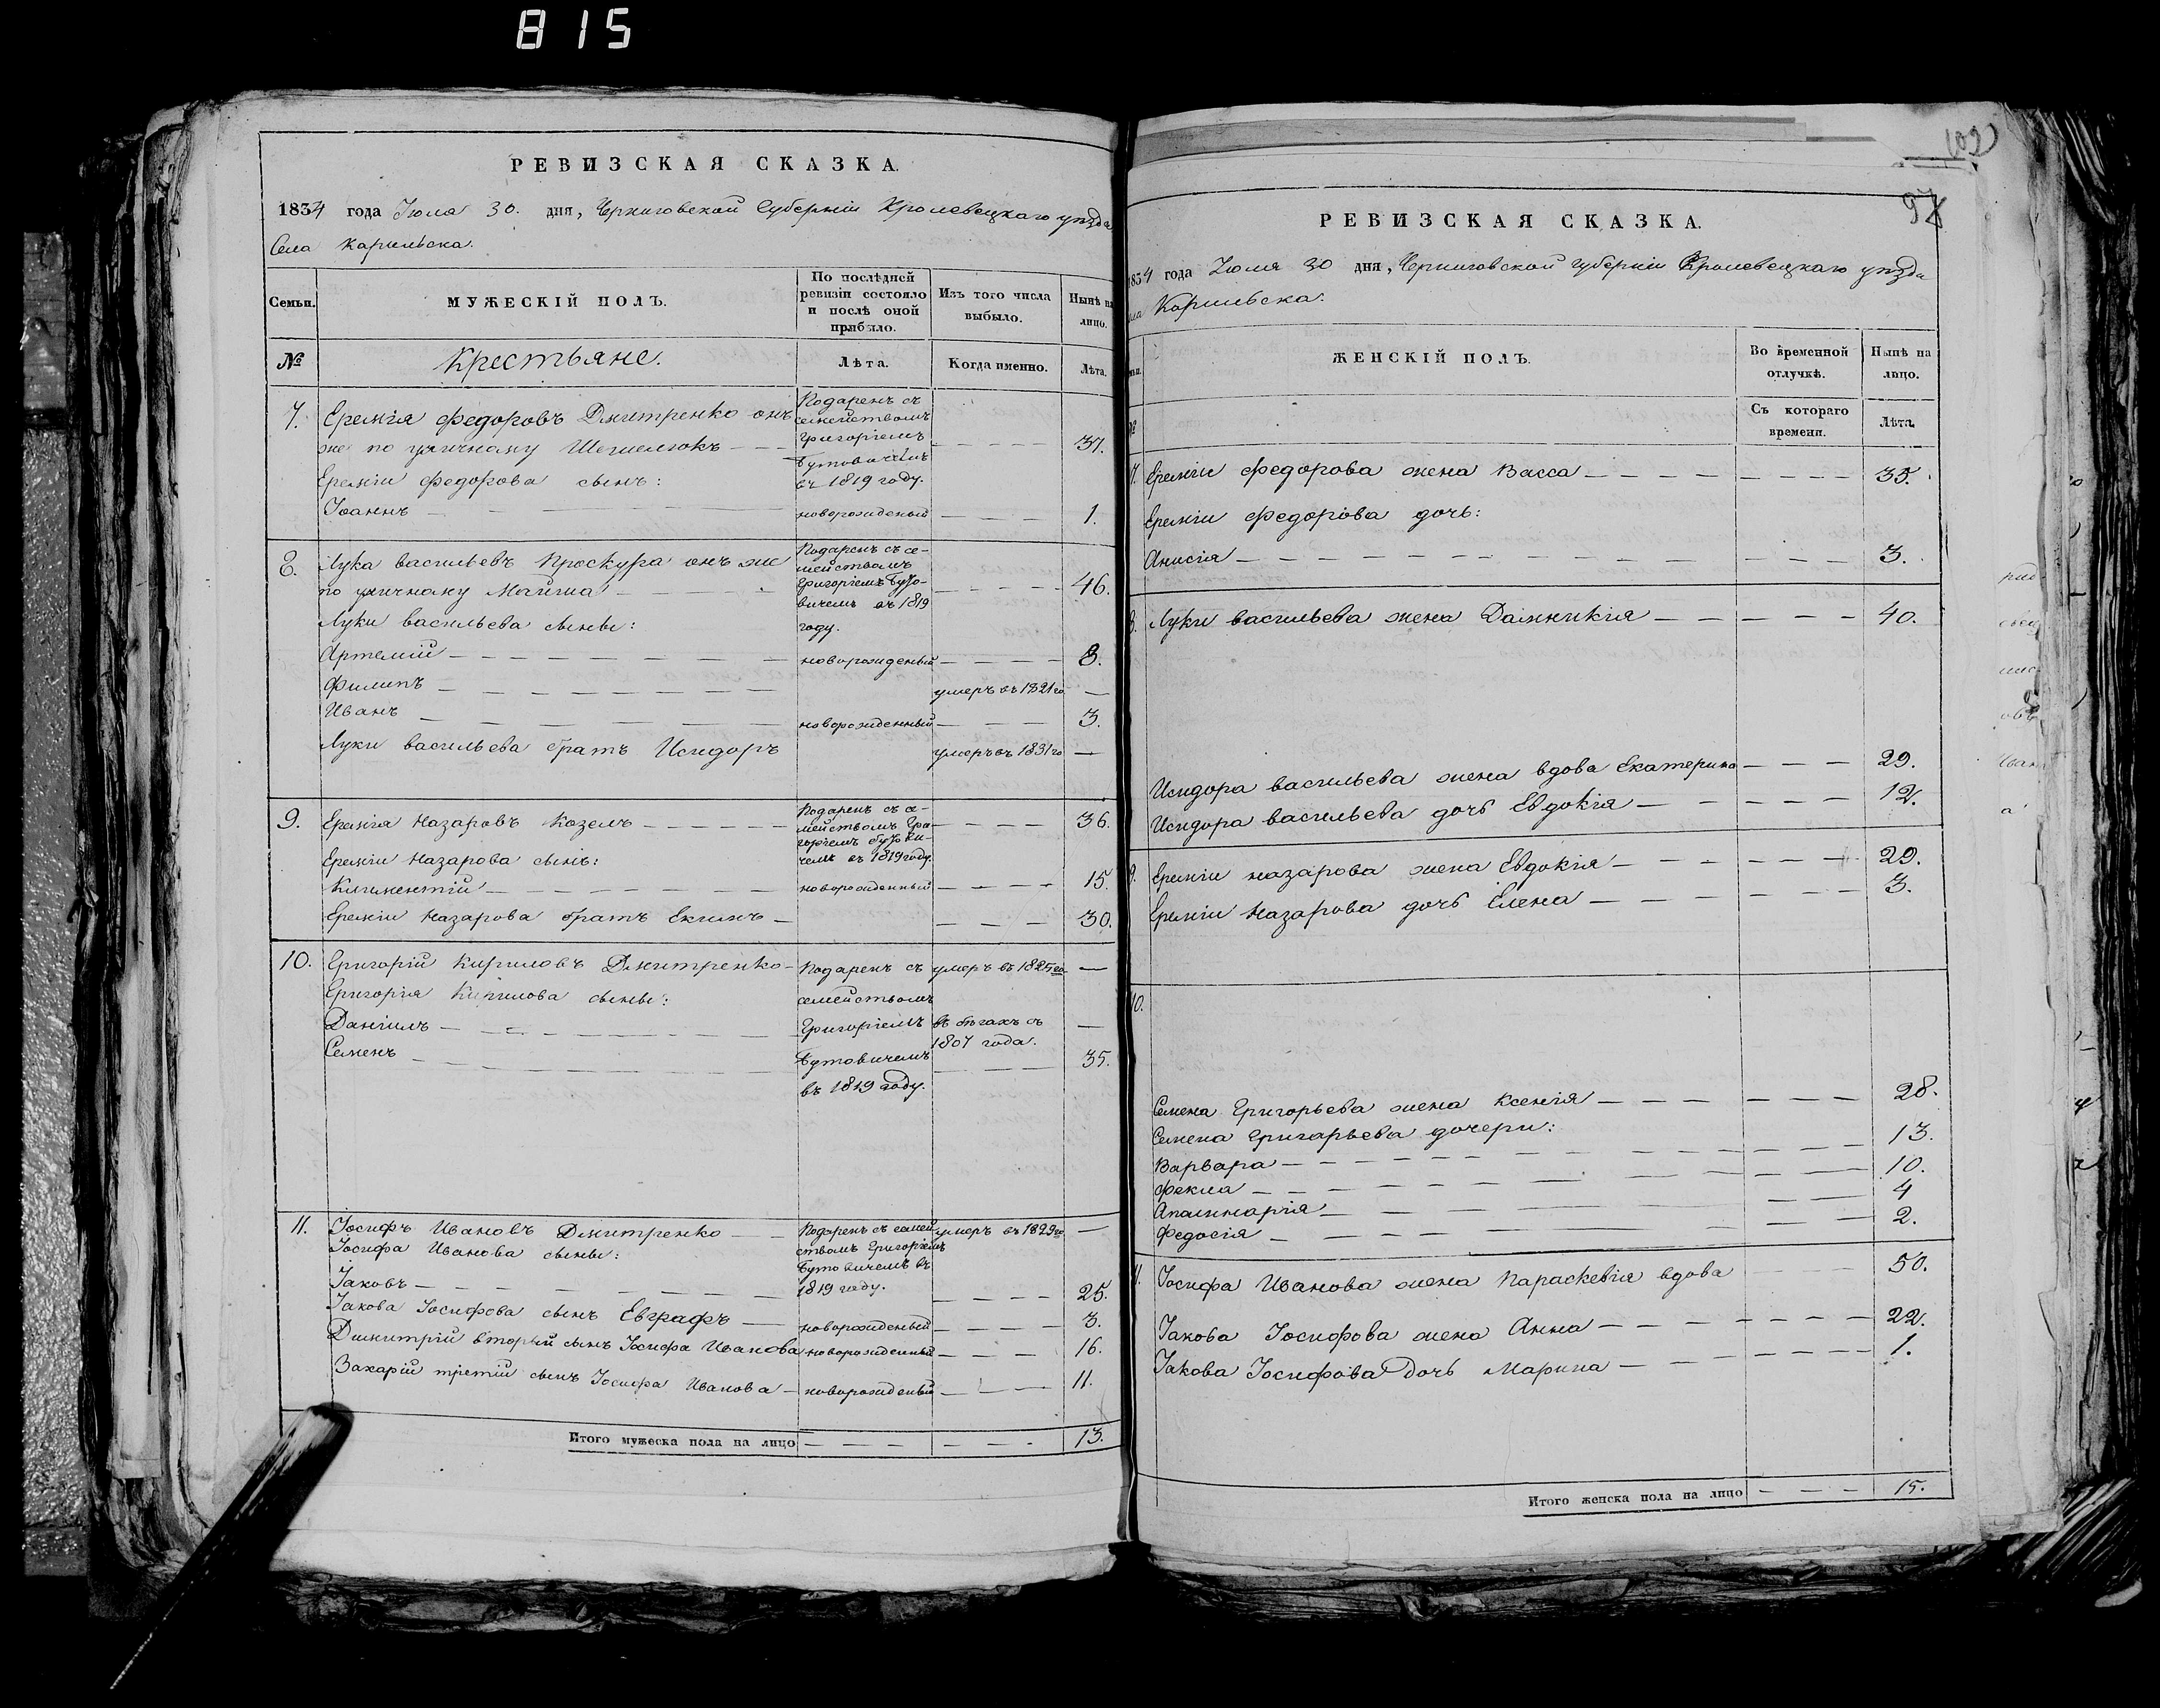 815
РЕВИЗСКАЯ СКАЗКА.
1834 года Іюля 30. дня, Черниговской Губерніи Кролевецкаго уѣзда
Села Карыльска.
Семьи.
МУЖЕСКІЙ ПОЛЪ.
По послѣдней
ревизіи состояло
и послѣ оной
прибыло.
Изъ того числа
выбыло.
Нынѣ на
лицо.
№
Крестьяне.
Лѣта.
Когда именно.
Лѣта.
7. Еремія Федоровъ Дмитренко онъ
же по уличному
Подаренъ съ
семействомъ
Григоріемъ
Бутовичемъ
въ 1819 году.
37.
Ереміи Федорова сынъ:
Іоаннъ — новорожденый — 1.
8. Лука Васильевъ Проскура онъ же
по уличному
Подаренъ съ се-
мействомъ
Григоріемъ Буто-
вичемъ въ 1819
году.
46.
Луки Васильева сыны:
Артемій — новорожденый — 8.
Филипъ — умеръ въ 1821 го —
Иванъ — новорожденный — 3.
Луки Васильева братъ Исидоръ умеръ въ 1831 го —
9. Еремія Назаровъ Козелъ —
Подаренъ съ се-
мействомъ Гри-
горіемъ Бутови-
чемъ въ 1819 году.
36.
Ереміи Назарова сынъ:
— новорожденный — 15.
Ереміи Назарова братъ Екимъ — 30.
10. Григорій Кириловъ Дмитренко —
Подаренъ съ
семействомъ
Григоріемъ
Бутовичемъ
въ 1819 году.
умеръ въ 1825 го —
Григорія Кирилова сыны:
Даніилъ — въ бѣгахъ съ
1807 года. —
Семенъ — 35.
11. Іосифъ Ивановъ Дмитренко —
Подаренъ съ семей-
ствомъ Григоріемъ
Бутовичемъ въ
1819 году.
умеръ въ 1829 го —
Іосифа Иванова сыны:
Іаковъ — 25.
Іакова Іосифова сынъ Евграфъ — новорожденый — 3.
Димитрій вторый сынъ Іосифа Иванова новорожденный — 16.
Захарій третій сынъ Іосифа Иванова — новорожденый — 11.
Итого мужеска пола на лицо — 13.
102
97
РЕВИЗСКАЯ СКАЗКА.
1834 года Іюля 30 дня, Черниговской Губерніи Кролевецкаго уѣзда
Карыльска.
ЖЕНСКІЙ ПОЛЪ.
Во временной
отлучкѣ.
Нынѣ на
лицо.
Съ котораго
времени.
Лѣта.
7. Ереміи Федорова жена Васса — 35.
Ереміи Федорова дочь:
Анисія — 3.
8. Луки Васильева жена Домникія — 40.
Исидора Васильева жена вдова Екатерина — 29.
Исидора Васильева дочь Евдокія — 12.
9. Ереміи Назарова жена Евдокія — 29.
Ереміи Назарова дочь Елена — 3.
10.
Семена Григорьева жена Ксенія — 28.
Семена Григорьева дочери:
Варвара — 13.
Фекла — 10.
Апалинарія — 4
Федосія — 2.
11. Іосифа Иванова жена Параскевія вдова 50.
Іакова Іосифова жена Анна — 22.
Іакова Іосифова дочь Марина — 1.
Итого женска пола на лицо — 15.